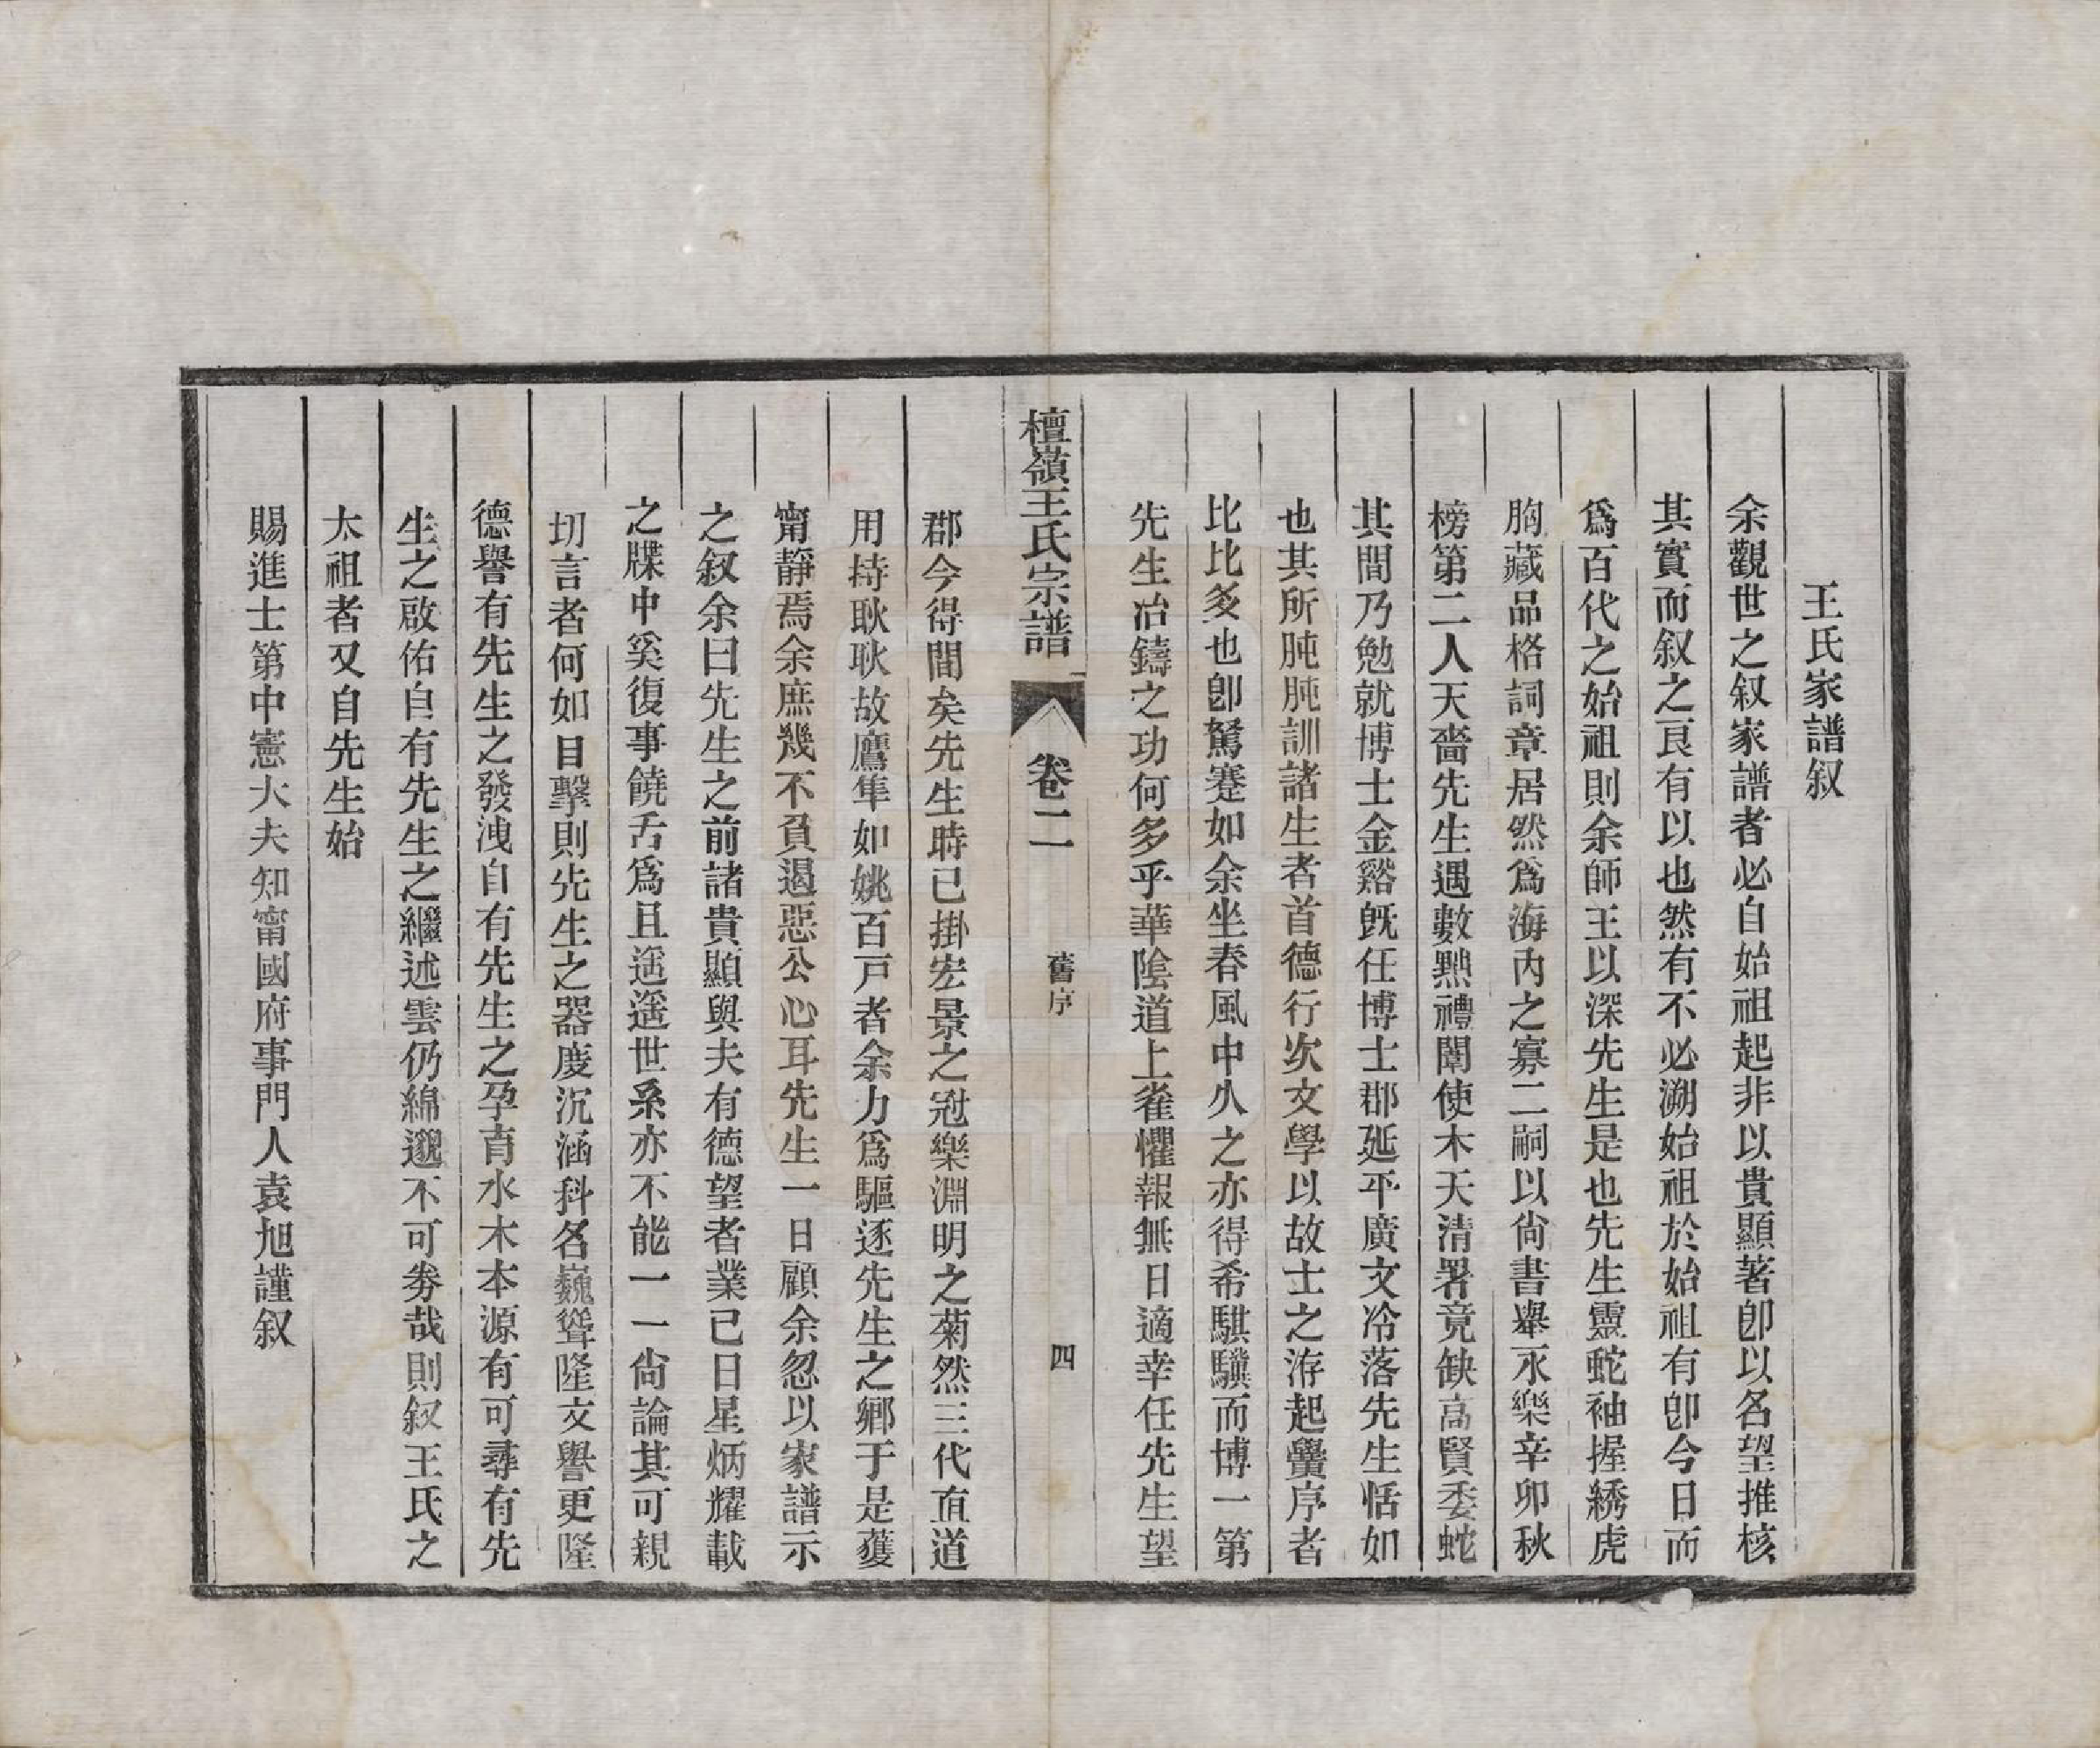 王氏家譜叙
余觀世之叙家譜者必自始祖起非以貴顯著卽以名望推核
其實而叙之良有以也然有不必溯始祖於始祖有卽今日而
爲百代之始祖則余師王以深先生是也先生靈蛇袖握綉虎
胸藏品格詞章居然爲海內之寡二嗣以尙書舉永樂辛卯秋
榜第二人天嗇先生遇數黜禮闈使木天清署竟缺高賢委蛇
其間乃勉就博士金谿旣任博士郡延平廣文冷落先生恬如
也其所肫肫訓諸生者首德行次文學以故士之洊起黌序者
比比多也卽駑蹇如余坐春風中久之亦得希騏驥而博一第
先生冶鑄之功何多乎華陰道上雀懼報無日適幸任先生望
檀嶺王氏宗譜
卷二
舊序
四
郡今得間矣先生時已掛宏景之冠樂淵明之菊然三代直道
用持耿耿故鷹隼如姚百戸者余力爲驅逐先生之鄕于是獲
甯靜焉余庶幾不負遏惡公心耳先生一日顧余忽以家譜示
之叙余曰先生之前諸貴顯與夫有德望者業已日星炳耀載
之牒中奚復事饒舌爲且遥遥世系亦不能一一尙論其可親
切言者何如目擊則先生之器度沉涵科名巍聳隆文譽更隆
德譽有先生之發洩自有先生之孕育水木本源有可尋有先
生之啟佑自有先生之繼述雲仍綿邈不可券哉則叙王氏之
太祖者又自先生始
賜進士第中憲大夫知甯國府事門人袁旭謹叙